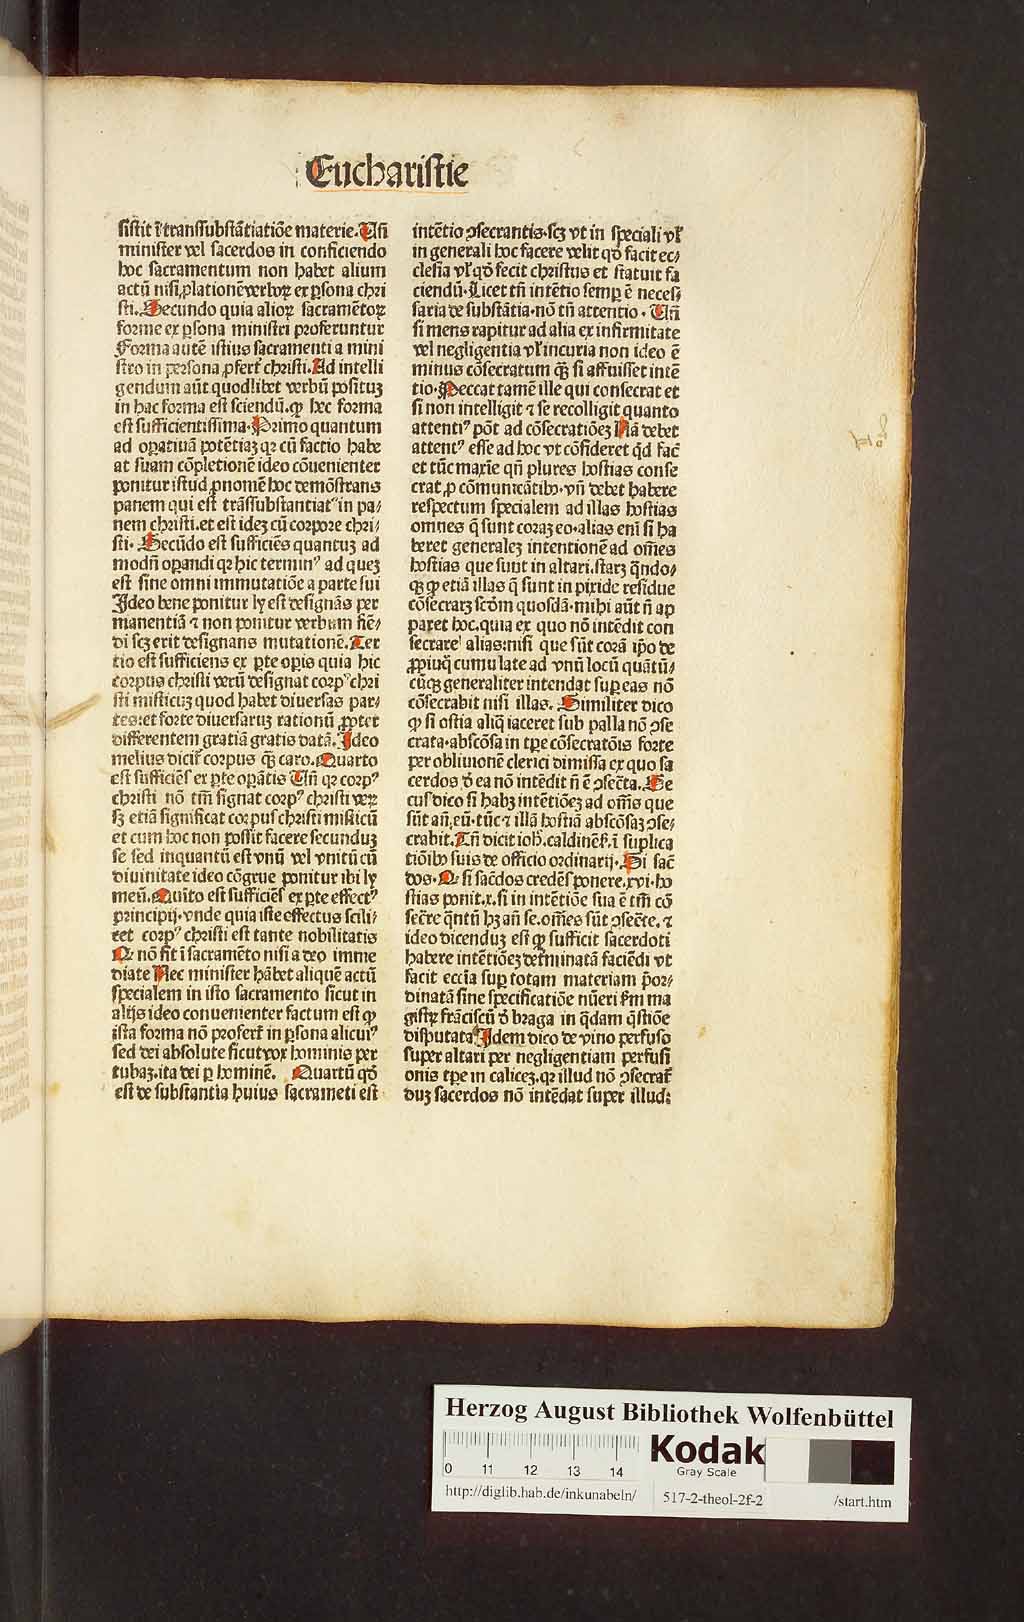 Eucharistie
sistit ĩ transsubstãtiatiõe materie. Uñ
minister vel sacerdos in conficiendo
hoc sacramentum non habet alium
actũ nisi ꝓlationẽ verboꝝ ex ꝑsona chri
sti. Secundo quia alioꝝ sacramẽtoꝝ
forme ex ꝑsona ministri proferuntur
Forma autẽ istius sacramenti a mini
stro in persona ꝓfert᷑ christi. Ad intelli
gendum aũt quodlibet verbũ posituꝫ
in hac forma est sciendũ. ꝙ hec forma
est sufficientissima. Primo quantum
ad oꝑatiuã potẽtiaꝫ qꝛ cũ factio habe
at suam cõpletionẽ ideo cõuenienter
ponitur istud ꝓnomẽ hoc demõstrans
panem qui est trãssubstantiat᷒ in pa⸗
nem christi. et est ideꝫ cũ corpore chri⸗
sti. Secũdo est sufficiẽs quantuꝫ ad
modũ oꝑandi qꝛ hic termin᷒ ad queꝫ
est sine omni immutatiõe a parte sui
Ideo bene ponitur ly est designãs per
manentiã ⁊ non ponitur verbum fiẽ⸗
di scꝫ erit designans mutationẽ. Ter
tio est sufficiens ex ꝑte oꝑis quia hic
corpus christi verũ designat corp᷒ chri
sti misticuꝫ quod habet diuersas par⸗
tes: et forte diuersaruꝫ rationũ ꝓpter
differentem gratiã gratis datã. Ideo
melius dicit᷑ corpus qꝫ̃ caro. Quarto
est sufficiẽs ex ꝑte oꝑãtis Uñ qꝛ corp᷒
christi nõ tm̃ signat corp᷒ christi veꝝ
sꝫ etiã significat corpus christi misticũ
et cum hoc non possit facere secunduꝫ
se sed inquantũ est vnũ vel vnitũ cũ
diuinitate ideo cõgrue ponitur ibi ly
meũ. Quĩto est sufficiẽs ex ꝑte effect᷒
principij. vnde quia iste effectus scili⸗
cet corp᷒ christi est tante nobilitatis
Q nõ fit ĩ sacramẽto nisi a deo imme
diate Nec minister hãbet aliquẽ actũ
specialem in isto sacramento sicut in
alijs ideo conuenienter factum est ꝙ
ista forma nõ profert᷑ in ꝑsona alicui᷒
sed dei absolute sicut vox hominis per
tubaꝫ. ita dei ꝑ hominẽ. Quartũ qđ
est de substantia huius sacrameti est
intẽtio ꝯsecrantis. scꝫ vt in speciali vl̃
in generali hoc facere velit qđ facit ec⸗
clesia vl̃ qđ fecit christus et statuit fa
ciendũ. Licet tñ intẽtio semꝑ ẽ neces⸗
saria de substãtia. nõ tñ attentio. Uñ
si mens rapitur ad alia ex infirmitate
vel negligentia vl̃ incuria non ideo ẽ
minus cõsecratum qꝫ̃ si affuisset intẽ
tio. Peccat tamẽ ille qui consecrat et
si non intelligit ⁊ se recolligit quanto
attenti᷒ põt ad cõsecratiõeꝫ Nã debet
attent᷒ esse ad hoc vt cõsideret qđ fac̃
et tũc maxĩe qñ plures hostias conse
crat ꝓ cõmunicãtibꝰ. vñ debet habere
respectum specialem ad illas hostias
omnes q̃ sunt coraꝫ eo. alias eni᷑ si ha
beret generaleꝫ intentionẽ ad oẽs
hostias que sunt in altari. staret qñdo⸗
qꝫ ꝙ etiã illas q̃ sunt in pixide residue
cõsecraret scd̃m quosdã. mihi aũt ñ ap
paret hoc. quia ex quo nõ intẽdit con
secrare alias. nisi que sũt corã ip̃o de
ꝓpiuqͥ cumulate ad vnũ locũ quãtũ⸗
cũqꝫ generaliter intendat suꝑ eas nõ
cõsecrabit nisi illas. Similiter dico
ꝙ si ostia aliq̃ iaceret sub palla nõ ꝯse
crata. abscõsa in tꝑe cõsecratõis forte
per obliuionẽ clerici dimissa ex quo sa
cerdos đ ea nõ intẽdit ñ ẽ ꝯsec̃ta. Se
cus dico si habꝫ intẽtiõeꝫ ad om̃s que
sũt añ, eũ. tũc ⁊ illã hostiã abscõsaꝫ ꝯse⸗
crabit. Tñ dicit ioh̃. caldinẽs̃. ĩ suplica
tiõibꝰ suis de officio ordinarij. Si sac̃
dos. Q si sac̃dos credẽs ponere. xvi. ho
stias ponit. x. si in intẽtiõe sua ẽ tm̃ cõ
sec̃re q̃ntũ hꝫ añ se. om̃es sũt ꝯsec̃te. ⁊
ideo dicenduꝫ est ꝙ sufficit sacerdoti
habere intẽtiõeꝫ det᷑minatã faciẽdi vt
facit ecc̃ia suꝑ totam materiam p̃or⸗
dinatã sine specificatiõe nũeri s̃m ma
gistꝝ frãciscũ đ braga in q̃dam q̃stiõe
disputata Idem dico de vino perfuso
super altari per negligentiam perfusi
onis tꝑe in caliceꝫ. qꝛ illud nõ ꝯsecrat᷑
duꝫ sacerdos nõ intẽdat super illud:
Herzog August Bibliothek Wolfenbüttel
0 11 12 13 14
Kodak
Gray Scale
http://diglib.hab.de/inkunabeln/ 517-2-theol-2f-2 /start.htm